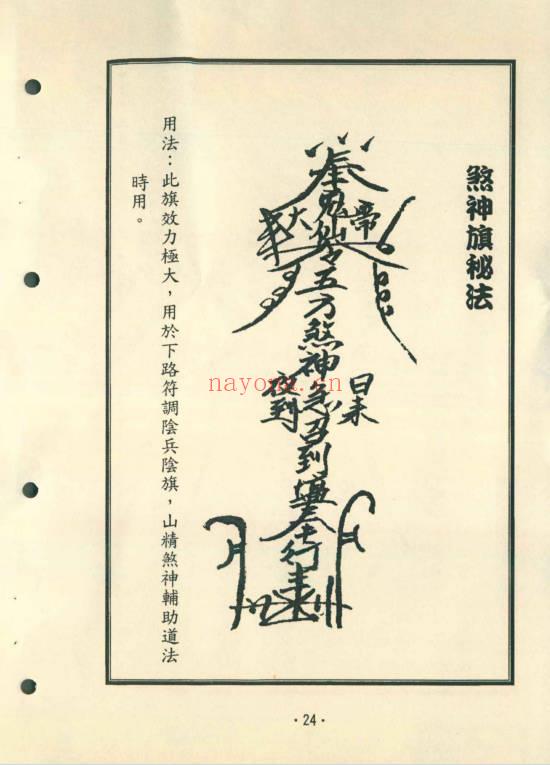 煞神旗秘法
奉
大帝
五方煞神急召到壇奉行
日來
夜到
用法：此旗效力極大，用於下路符調陰兵陰旗，山精煞神輔助道法
時用。
nayona.cn
·24·